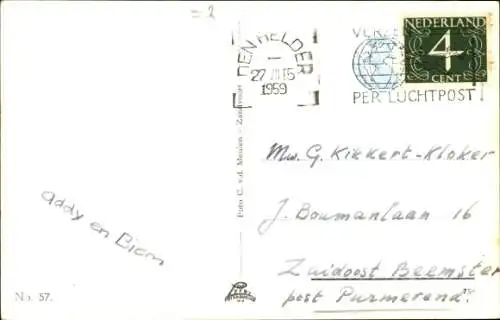 = 2
DEN HELDER
27 VII 15
1959
VERZE
PER LUCHTPOST!
NEDERLAND
4
CENT
Mw. G. Kikkert-Kloker
J. Boumanlaan 16
Zuidoost Beemster
post Purmerend.
addy en Biem
Foto C. v.d. Meulen - Zandvoort
No. 57.